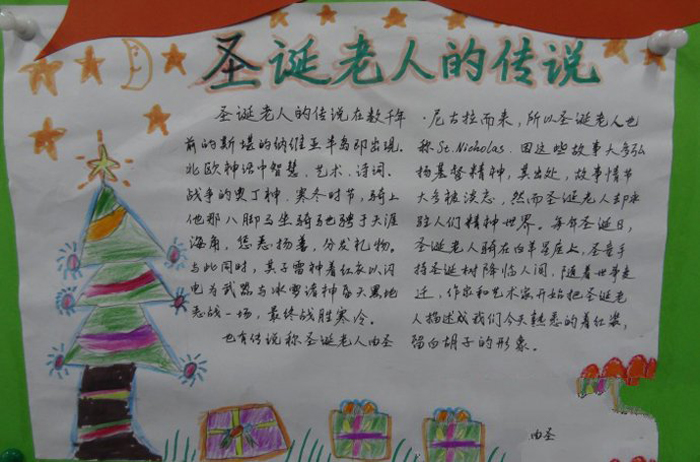 圣诞老人的传说
圣诞老人的传说在数千年
前的斯堪的纳维亚半岛即出现。
北欧神话中智慧、艺术、诗词、
战争的奥丁神,寒冬时节,骑上
他那八脚马坐骑驰骋于天涯
海角,惩恶扬善,分发礼物。
与此同时,其子雷神着红衣以闪
电为武器与冰雪诸神昏天黑地
恶战一场,最终战胜寒冷。
也有传说称圣诞老人由圣
·尼古拉而来,所以圣诞老人也
称St.Nicholas.因这些故事大多弘
扬基督精神,其出处,故事情节
大多被淡忘,然而圣诞老人却永
驻人们精神世界。每年圣诞日,
圣诞老人骑在白羊星座上,圣童手
持圣诞树降临人间,随着世事变
迁,作家和艺术家开始把圣诞老
人描述成我们今天熟悉的着红装,
留白胡子的形象。
由圣